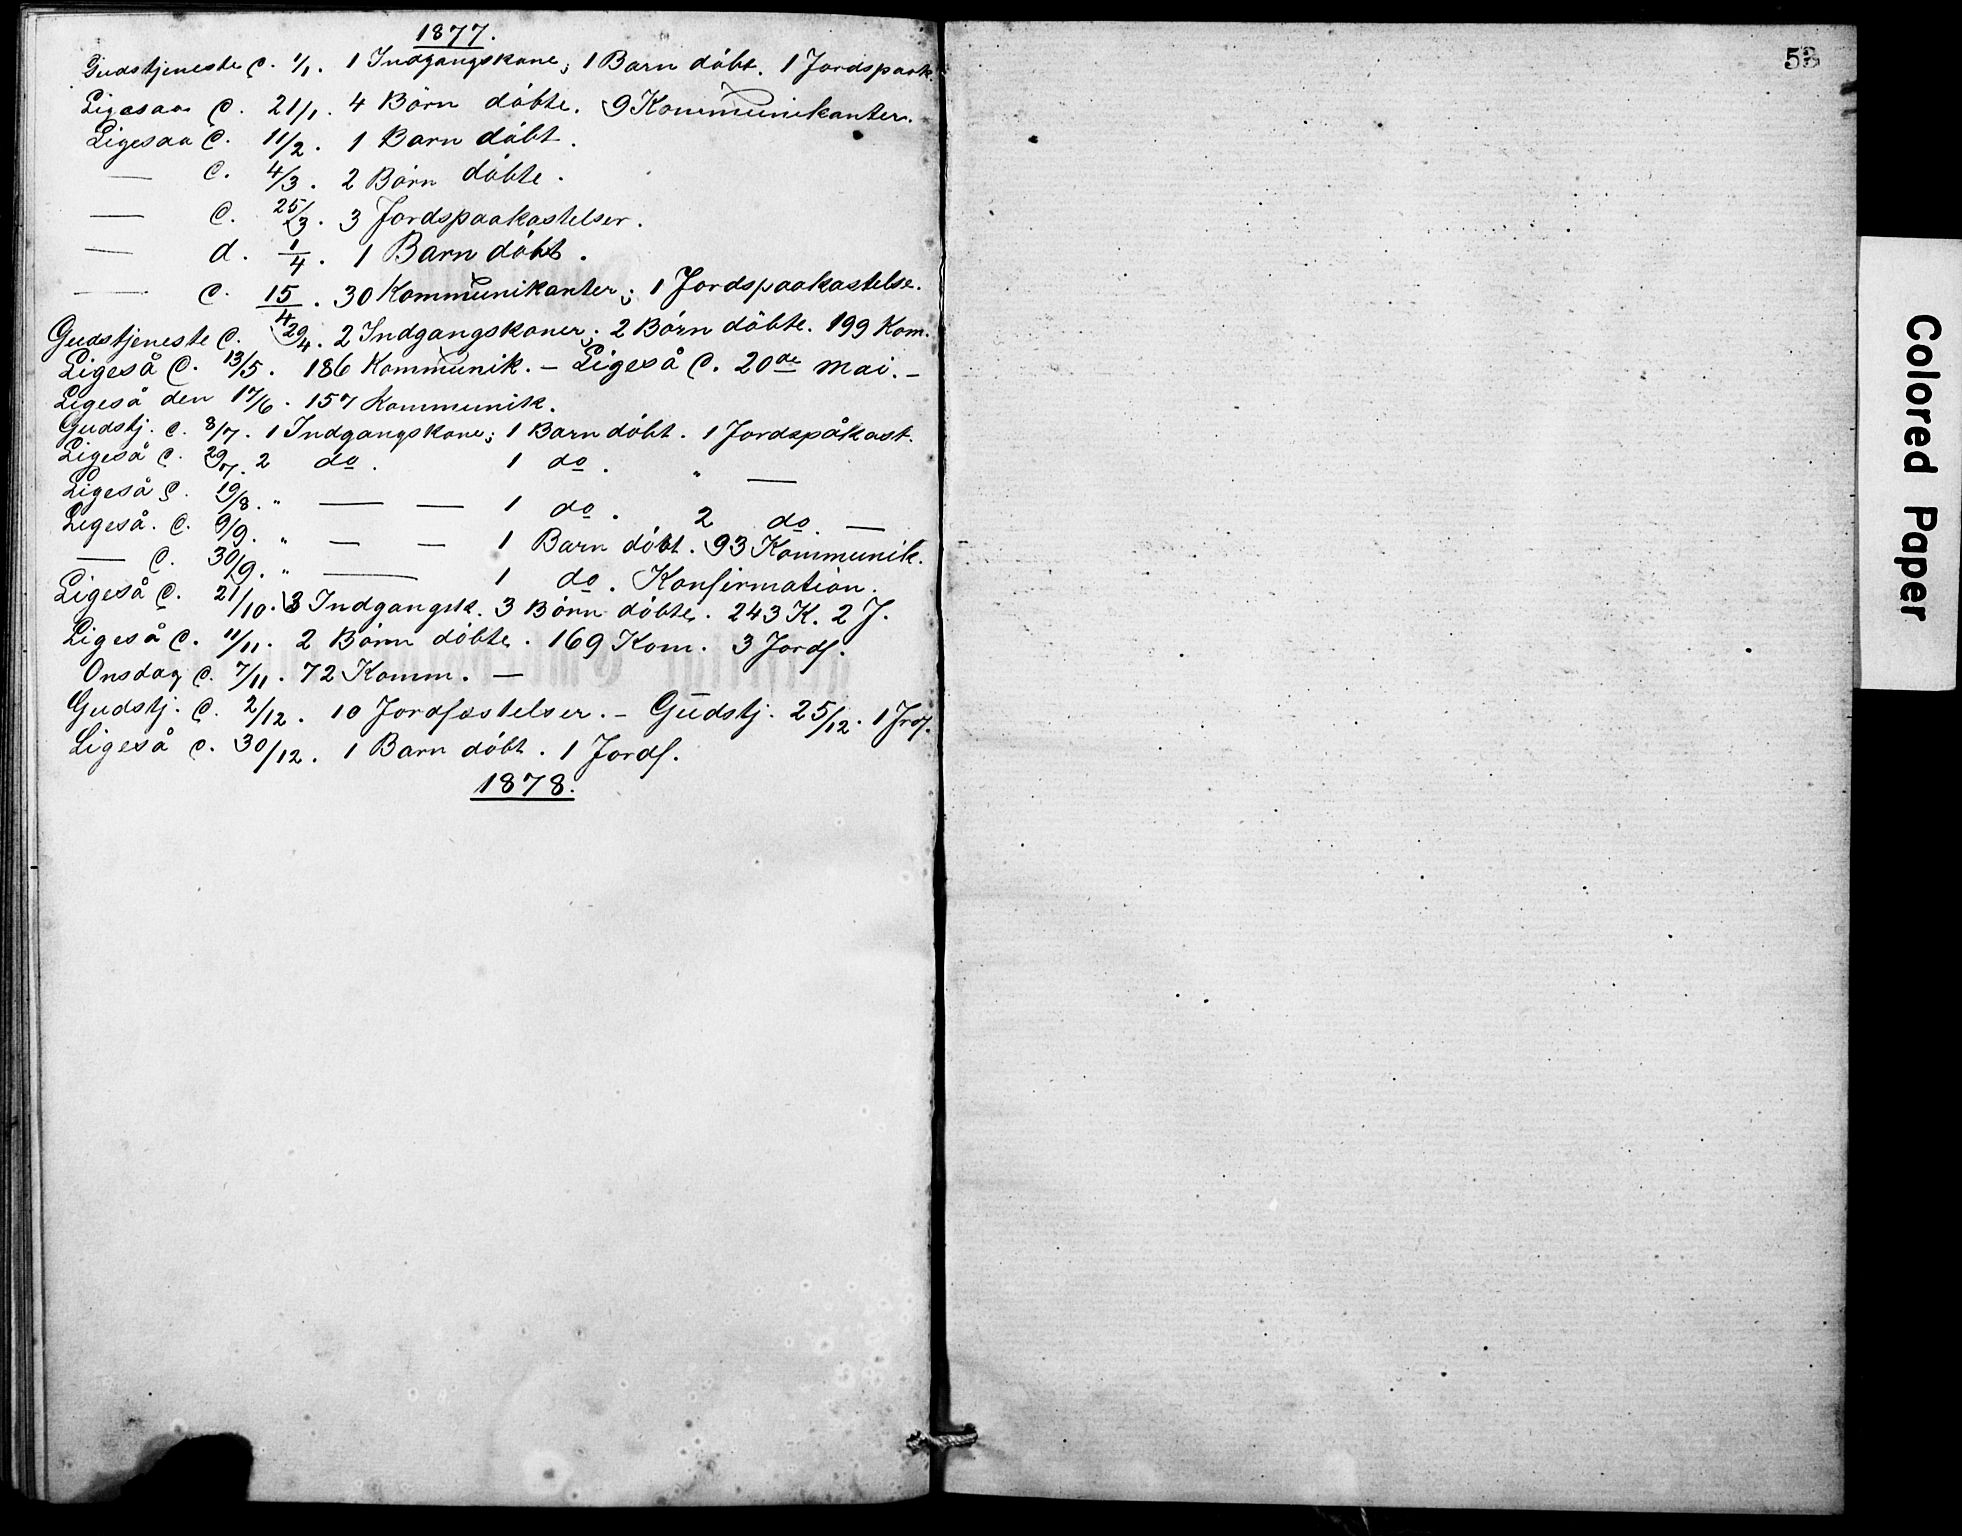 1877.
Gudstjeneste d. 1/1. 1 Indgangskone; 1 Barn döbt. 1 Jordspaak.
Ligesaa d. 21/1. 4 Börn döbte. 9 Kommunikanter.
Ligesaa d. 11/2. 1 Barn döbt.
— d. 4/3. 2 Börn döbte.
— d. 25/3. 3 Jordspaakastelser.
— d. 1/4. 1 Barn döbt.
— d. 15/4. 30 Kommunikanter; 1 Jordspaakastelse.
Gudstjeneste d. 29/4. 2 Indgangskoner; 2 Börn döbte. 199 Kom.
Ligeså d. 13/5. 186 Kommunik. – Ligeså d. 20de Mai. –
Ligeså den 17/6. 157 Kommunik.
Gudstj. d. 8/7. 1 Indgangskone; 1 Barn döbt. 1 Jordspåkast.
Ligeså d. 29/7. 2 do. 1 do. " —
Ligeså d. 19/8. " — — 1 do. 2 do. —
Ligeså. d. 9/9. " — — 1 Barn döbt. 93 Kommunik.
— d. 30/9. " — 1 do. Konfirmation.
Ligeså d. 21/10. 3 Indgangsk. 3 Börn döbte. 243 K. 2 J.
Ligeså d. 11/11. 2 Börn döbte. 169 Kom. 3 Jordf.
Onsdag d. 7/11. 72 Komm. —
Gudstj. d. 2/12. 10 Jordfæstelser. – Gudstj. 25/12. 1 Jrdf.
Ligeså d. 30/12. 1 Barn döbt. 1 Jordf.
1878.
Colored Paper